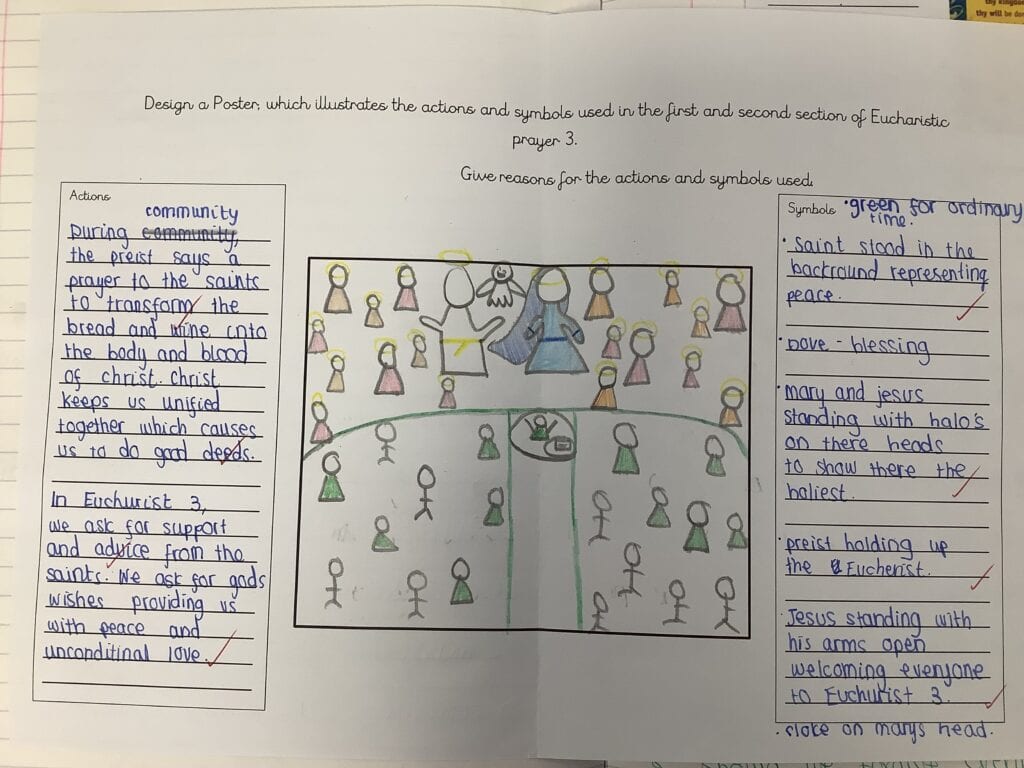 thy kingdom
thy will be do
Design a Poster, which illustrates the actions and symbols used in the first and second section of Eucharistic
prayer 3.
Give reasons for the actions and symbols used.
Actions
community
During community,
the preist says a
prayer to the saints
to transform the
bread and wine into
the body and blood
of christ. Christ
keeps us unified
together which causes
us to do good deeds.
In Euchurist 3,
we ask for support
and advice from the
saints. We ask for gods
wishes providing us
with peace and
unconditinal love.
Symbols
• green for ordinary
time.
• saint stood in the
backround representing
peace.
• Dove - blessing
• mary and jesus
standing with halo's
on there heads
to show there the
holiest.
• preist holding up
the Eucherist.
• Jesus standing with
his arms open
welcoming everyone
to Euchurist 3.
• cloke on marys head.